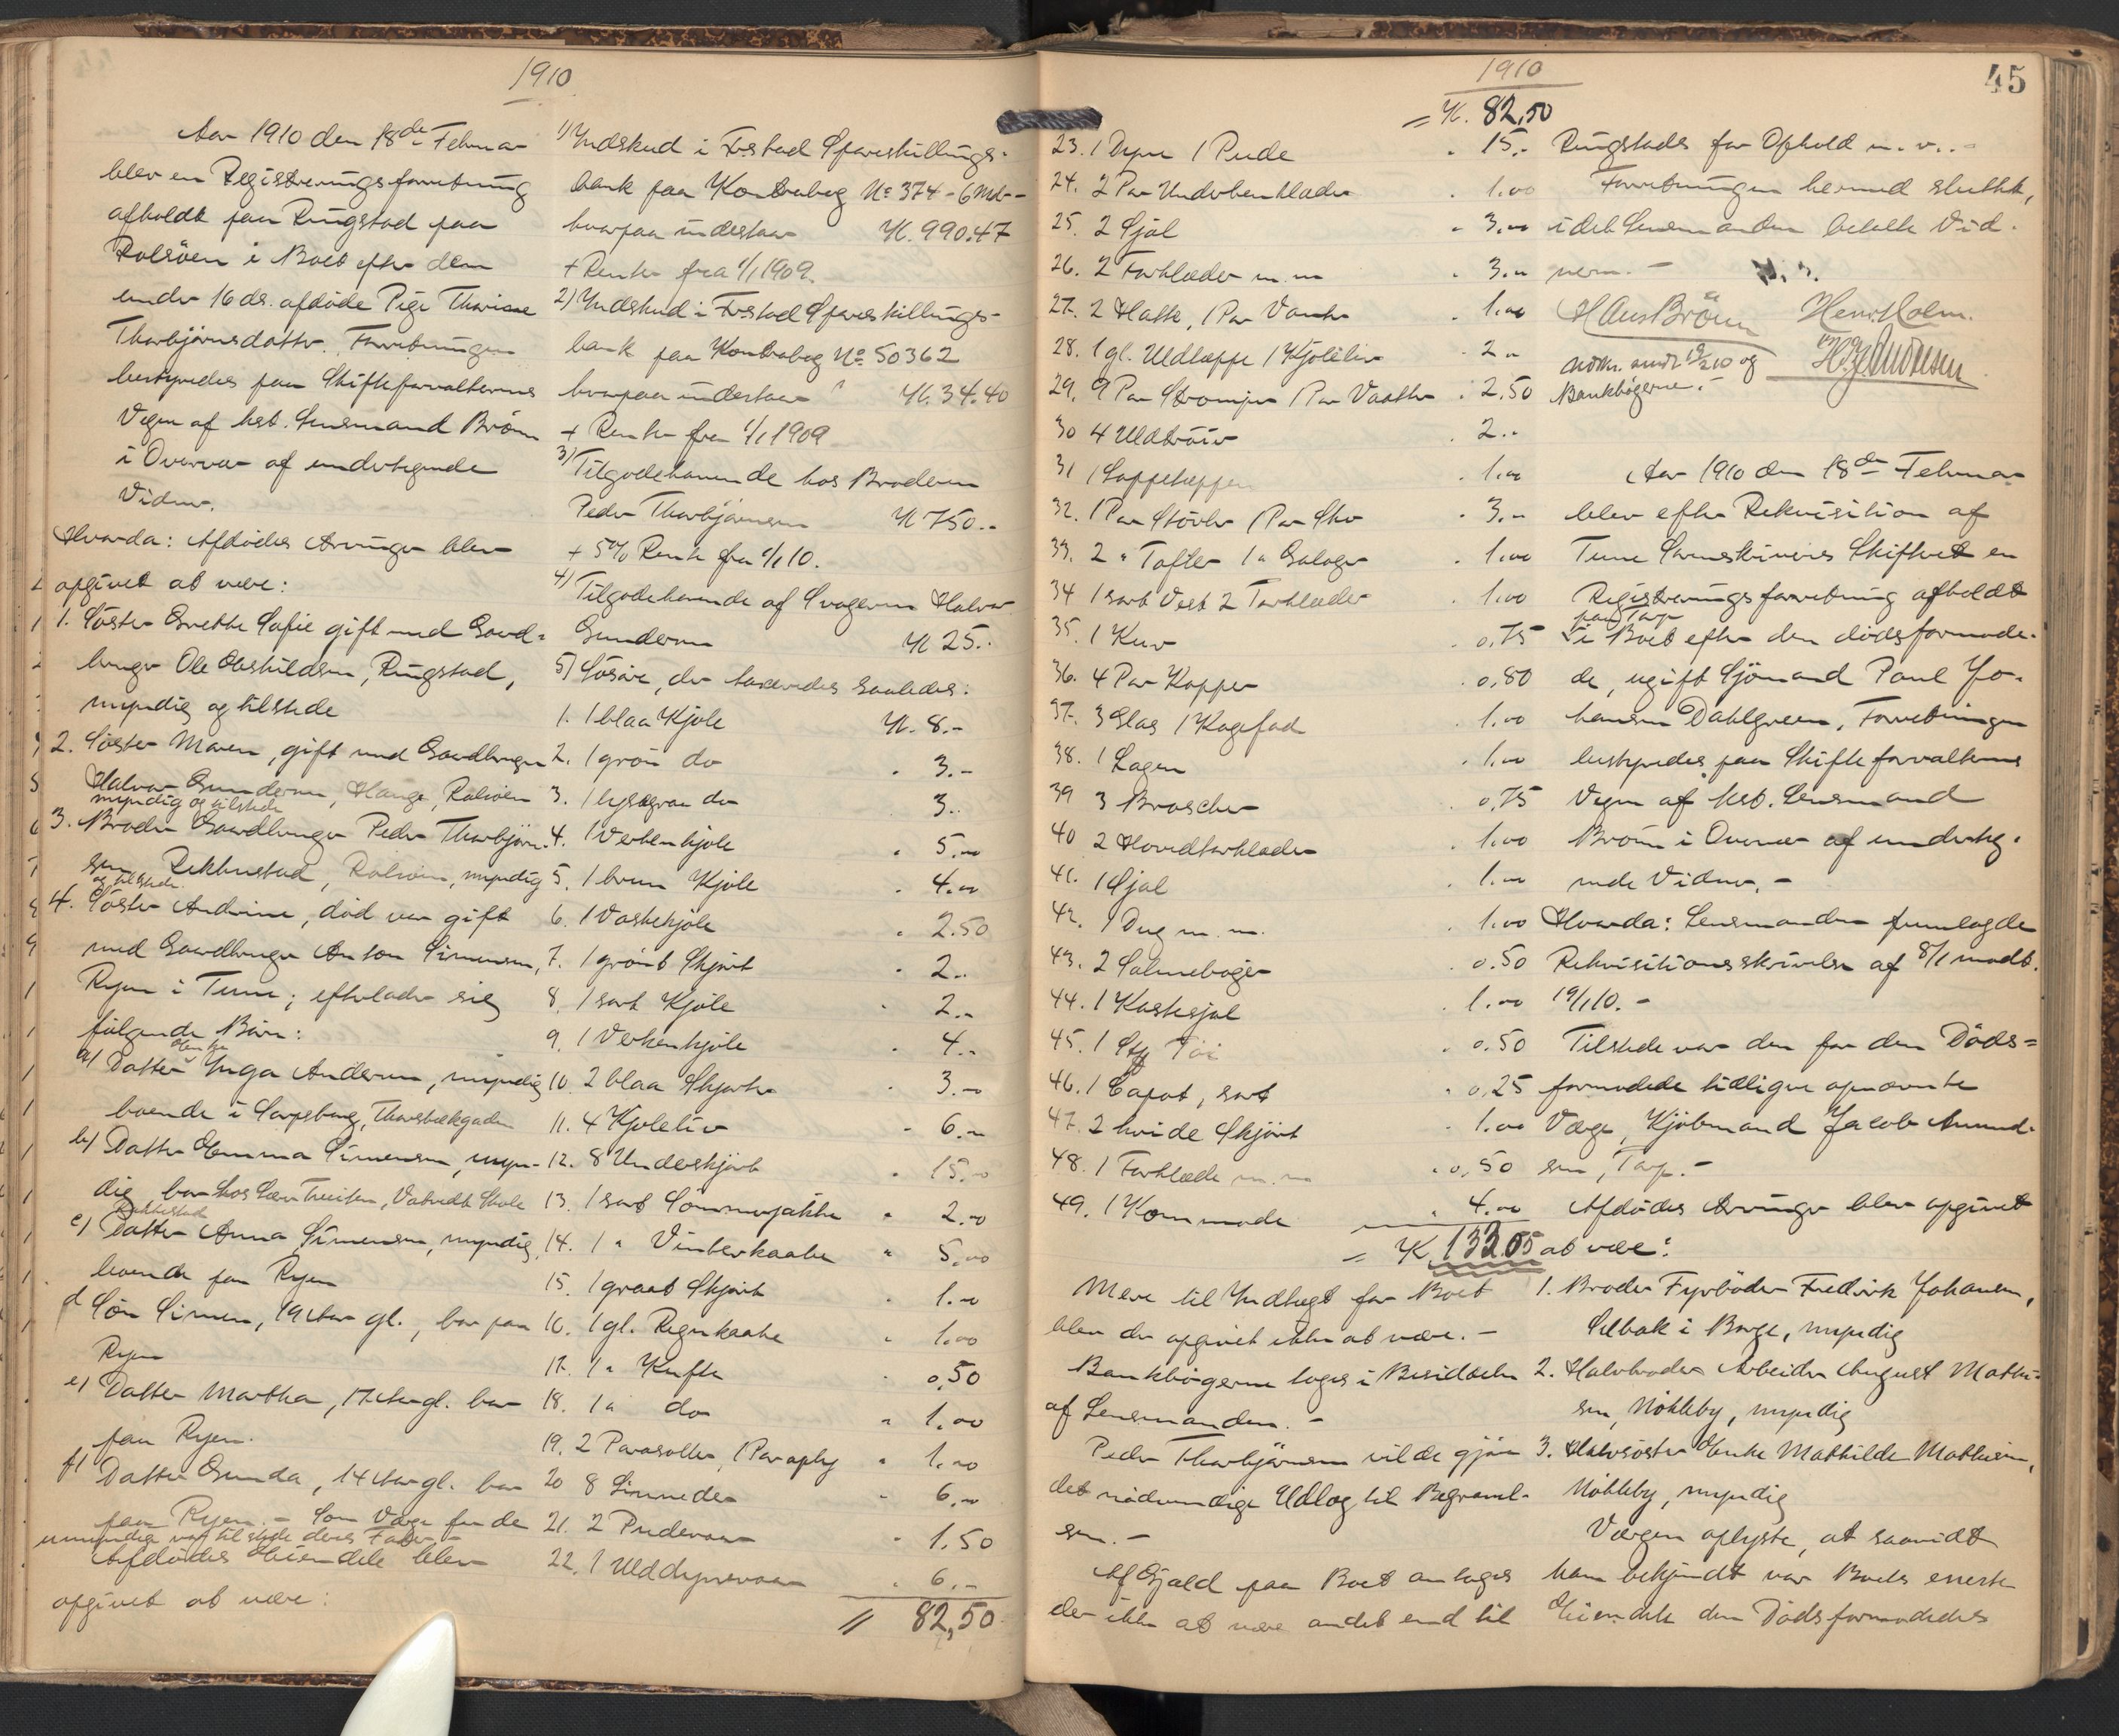 1910
Aar 1910 den 18de Februar
blev en Registreringsforretning
afholdt paa Ringstad paa
Rolsöen i Boet efter den
under 16 ds. afdöde Pige Thorine
Thorbjörnsdatter. Forretningen
bestyredes paa Skifteforvalterens
Vegne af kst. Lensmand Bröun
i Overvær af undertegnede
Vidner.
Hvorda: Afdödes Arvinger blev
opgivet at være:
1. Söster Grethe Sofie gift med Gaard-
bruger Ole Eskildsen, Ringstad,
myndig og tilstede
2. Söster Maren, gift med Gaardbruger
Halvor Gundersen, Hauge, Rolsöen
myndig og tilstede
3. Broder Gaardbruger Peder Thorbjörn-
sen Rekkustad, Rolsöen, myndig
og tilstede.
4. Söster Andrine, död var gift
med Gaardbruger Anton Simensen,
Ryen i Tune; efterlader sig
fölgende Börn:
a) Datter Enke Inga Andersen, myndig
boende i Sarpsborg, Thorsbækgaden
b) Datter Emma Simensen, myn-
dig, bor hos Lær Treiten, Vatvedt Skole
Rakkestad
c) Datter Anna Simensen, myndig,
boende paa Ryen
d Sön Simen, 19 Aar gl., bor paa
Ryen
e) Datter Martha, 17 Aar gl. bor
paa Ryen.
f) Datter Gunda, 14 Aar gl. bor
paa Ryen. - Som Værge for de
umyndige var tilstede deres Fader -
Afdödes Eiendele blev
opgivet at være:
1) Indskud i Fr.stad Spareskillings-
bank paa Kontrabog No 374 - 6 Md -
hvorpaa indestaar K. 990.47
+ Renter fra 1/1 1909.
2) Indskud i Fr.stad Spareskillings-
bank paa Kontrabog No 50362
hvorpaa indestaar K. 34.40
+ Renter fra 1/1 1909
3) Tilgodehavende hos Broderen
Peder Thorbjörnsen K 750..
+ 5% Rente fra 1/1 10.
4) Tilgodehavende af Svogeren Halvor
Gundersen K 25..
5) Lösöre, der taxeredes saaledes:
1. 1 blaa Kjole K. 8.-
2. 1 grön do " 3.-
3. 1 lysegraa do 3..
4. 1 Verkenkjole " 5.00
5. 1 brun Kjole " 4.00
6. 1 Vaskekjole " 2.50
7. 1 grönt Skjört " 2..
8. 1 sort Kjole " 2..
9. 1 Verkenkjole " 4..
10. 2 blaa Skjörter " 3.00
11. 4 Kjoleliv " 6.00
12. 8 Underskjört " 15.00
13. 1 sort Sommerjakke " 2.00
14. 1 " Vinterkaabe " 5.00
15. 1 graat Skjört " 1.00
16. 1 gl. Regnkaabe " 1.00
17. 1 " Kufte " 0,50
18. 1 " do " 1.00
19. 2 Parasoller, 1 Paraply " 1.00
20 8 Linneder " 6.00
21. 2 Pudevaar " 1.50
22. 1 Ulddynevaar " 6.-
= 82,50
1910
45
= K. 82,50
23. 1 Dyne 1 Pude " 15.-
24. 2 Par Underbenklæder " 1.00
25. 2 Sjal " 3.00
26. 2 Forklæder m.m " 3.00
27. 2 Hatte, 1 Par Vanter " 1.00
28. 1 gl. Uldtæppe 1 Kjoleliv " 2.00
29. 9 Par Strömper 1 Par Vaatter " 2.50
30 4 Uldtröier " 2..
31 1 Loppetæppe " 1.00
32. 1 Par Stövler 1 Par Sko " 3.00
33. 2 " Tofler 1 " Galoger " 1.00
34 1 sort Vest 2 Torklæder " 1.00
35. 1 Kurv " 0,75
36. 4 Par Kopper " 0,80
37. 3 Glas 1 Kagefad " 1.00
38. 1 Lagen " 1.00
39 3 Broscher " 0,75
40 2 Hovedtörklæder " 1.00
41. 1 Sjal " 1.00
42. 1 Dug m.m. " 1.00
43. 2 Salmeböger " 0.50
44. 1 Kastesjal " 1.00
45. 1 Stk Töi " 0.50
46. 1 Capot, sort " 0,25
47. 2 hvide Skjört " 1.00
48. 1 Forklæde m.m " 0,50
49. 1 Kommode " 4.00
= K 133.05
Mere til Indtægt for Boet
blev der opgivet ikke at være. -
Bankbögerne toges i Besiddelse
af Lensmanden. -
Peder Thorbjörnsen vilde gjöre
det nödvendige Udlæg til Begravel-
sen. -
Af Gjæld paa Boet antoges
der ikke at være andet end til
Ringstads for Ophold m.v.. -
Forretningen hermed sluttet,
idet Lensmanden betalte Vid-
nerne. -
Hans Bröun Henr. Holm.
H. J. Andresen
Bankbögerne. -
Aar 1910 den 18de Februar
blev efter Rekvisition af
Tune Sorenskriveris Skifteret en
Registreringsforretning afholdt
paa Torp
i Boet efter den dödsformode-
de, ugift Sjömand Paul Jo-
hansen Dahlgreen. Forretningen
bestyredes paa Skifteforvalterens
Vegne af kst. Lensmand
Bröun i Overvær af underteg-
nede Vidner. -
Hvorda: Lensmanden fremlagde
Rekvisitionsskrivelse af 8/1 modt.
19/1 10. -
Tilstede var den for den Döds=
formodede tidligere opnævnte
Værge, Kjöbmand Jacob Amund-
sen, Torp. -
Afdödes Arvinger blev opgivet
at være:
1. Broder Fyrböder Fredrik Johansen,
Selbak i Borge, myndig
2. Halvbroder Arbeider August Mathi-
sen, Nökleby, myndig
3. Halvsöster Enke Mathilde Mathisen,
Nökleby, myndig
Værgen oplyste, at saavidt
ham bekjendt var Boets eneste
Eiendele den Dödsformodedes